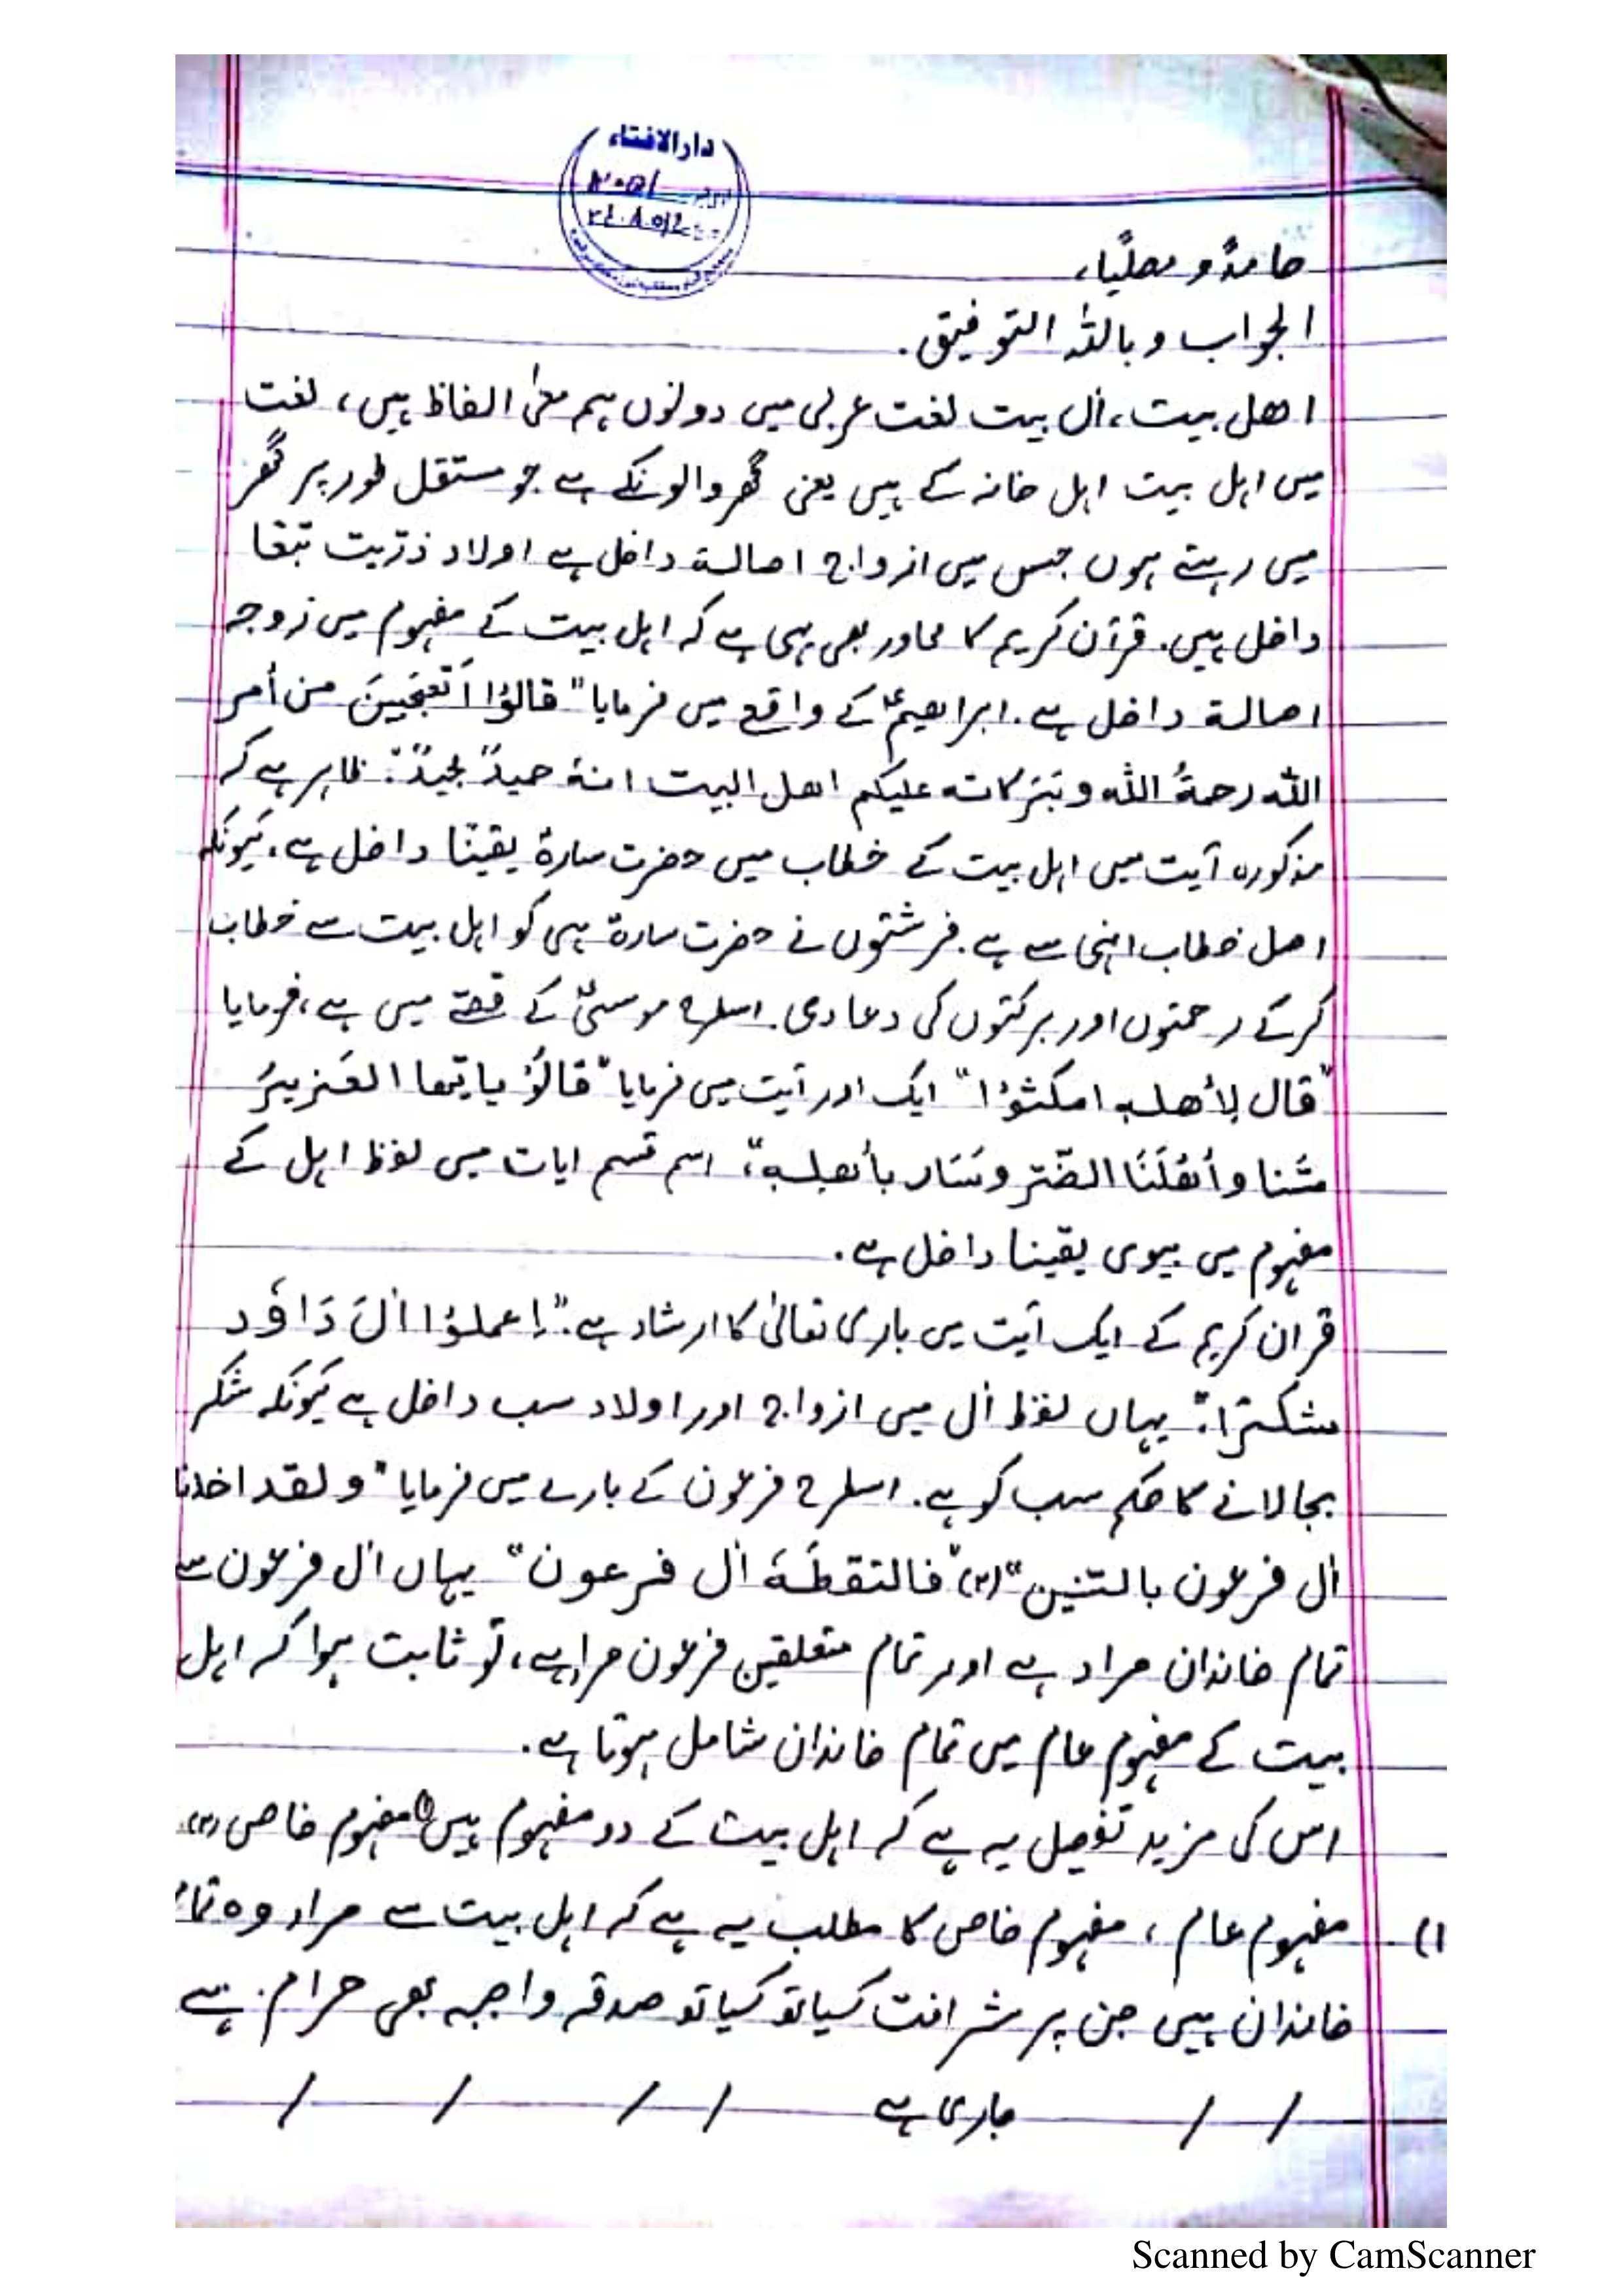 دارالافتاء
حامدً و مصلیًا،
الجواب وباللہ التوفیق.
اھل بیت، اٰل بیت لغت عربی میں دونوں ہم معنیٰ الفاظ ہیں، لغت
میں اہل بیت اہل خانہ کے ہیں یعنی گھر والونکے ہے جو مستقل طور پر گھر
میں رہتے ہوں جس میں ازواج اصالۃ داخل ہے اولاد ذرّیت تبعًا
داخل ہیں. قرآن کریم کا محاور بھی یہی ہے کہ اہل بیت کے مفہوم میں زوجہ
اصالۃ داخل ہے. ابراھیمؑ کے واقع میں فرمایا "قالوْا اَتَعجَبِینَ من أمر
اللّٰہ رحمةُ اللّٰہ وبَرَکاتہ علیکم اھل البیت انہ حمیدٌ مجیدٌ". ظاہر ہے کہ
مذکورہ آیت میں اہل بیت کے خطاب میں حضرت سارۃ یقینًا داخل ہے، کیونکہ
اصل خطاب انہی سے ہے. فرشتوں نے حضرت سارۃ ہی کو اہل بیت سے خطاب
کرکے رحمتوں اور برکتوں کی دعا دی. اسطرح موسیٰؑ کے قصّے میں ہے، فرمایا
"قال لِأھلہ امکثوْا" ایک اور آیت میں فرمایا "قالوْ یایھا العَزیزُ
مسَّنا وأھلَنَا الضّر وسَار بأھلہ"، اس قسم ایات میں لفظ اہل کے
مفہوم میں بیوی یقینا داخل ہے.
قران کریم کے ایک آیت میں باری تعالیٰ کا ارشاد ہے. "اِعملوْا اٰلَ دَاوٗد
شکرًا". یہاں لفظ اٰل میں ازواج اور اولاد سب داخل ہے کیونکہ شکر
بجالانے کا حکم سب کو ہے. اسطرح فرعون کے بارے میں فرمایا "ولقد اخذنا
اٰل فرعون بالسّنین" (۲) "فالتقطَہَ اٰل فرعون" یہاں اٰل فرعون سے
تمام خاندان مراد ہے اور تمام متعلقین فرعون مراد ہے، تو ثابت ہوا کہ اہل
بیت کے مفہوم عام میں تمام خاندان شامل ہوتا ہے.
اس کی مزید تفصیل یہ ہے کہ اہل بیت کے دو مفہوم ہیں (۱) مفہوم خاص (۲)
۱) مفہوم عام، مفہوم خاص کا مطلب یہ ہے کہ اہل بیت سے مراد وہ تمام
خاندان ہیں جن پر شرافت کیا تو کیا تو صدقہ واجبہ بھی حرام ہے
/ / جاری ہے / / / /
Scanned by CamScanner